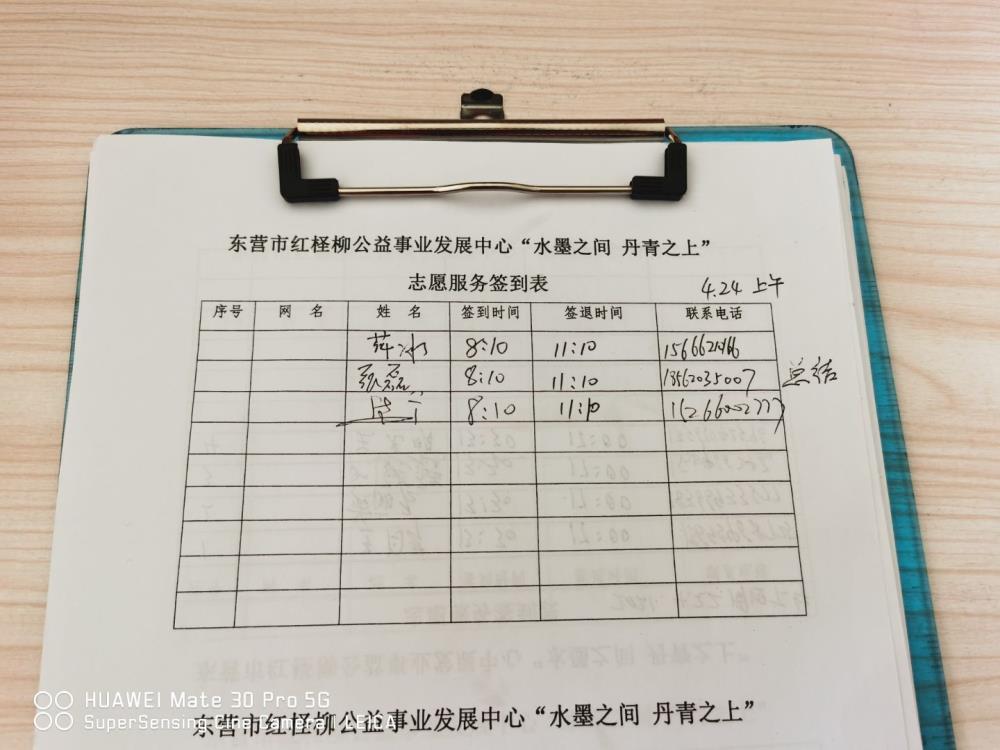 东营市红柽柳公益事业发展中心“水墨之间 丹青之上”
志愿服务签到表
4.24 上午
序号 网 名 姓 名 签到时间 签退时间 联系电话
8:10 11:10
张磊 8:10 11:10 13562035007 总结
8:10 11:10
东营市红柽柳公益事业发展中心“水墨之间 丹青之上”
HUAWEI Mate 30 Pro 5G
SuperSensing Cine Camera | LEICA